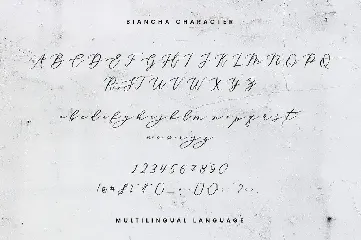 BIANCHA CHARACTER
A B C D E F G H I J K L M N O P Q
R S T U V W X Y Z
a b c d e f g h i j k l m n o p q r s t
u v w x y z
1 2 3 4 5 6 7 8 9 0
MULTILINGUAL LANGUAGE